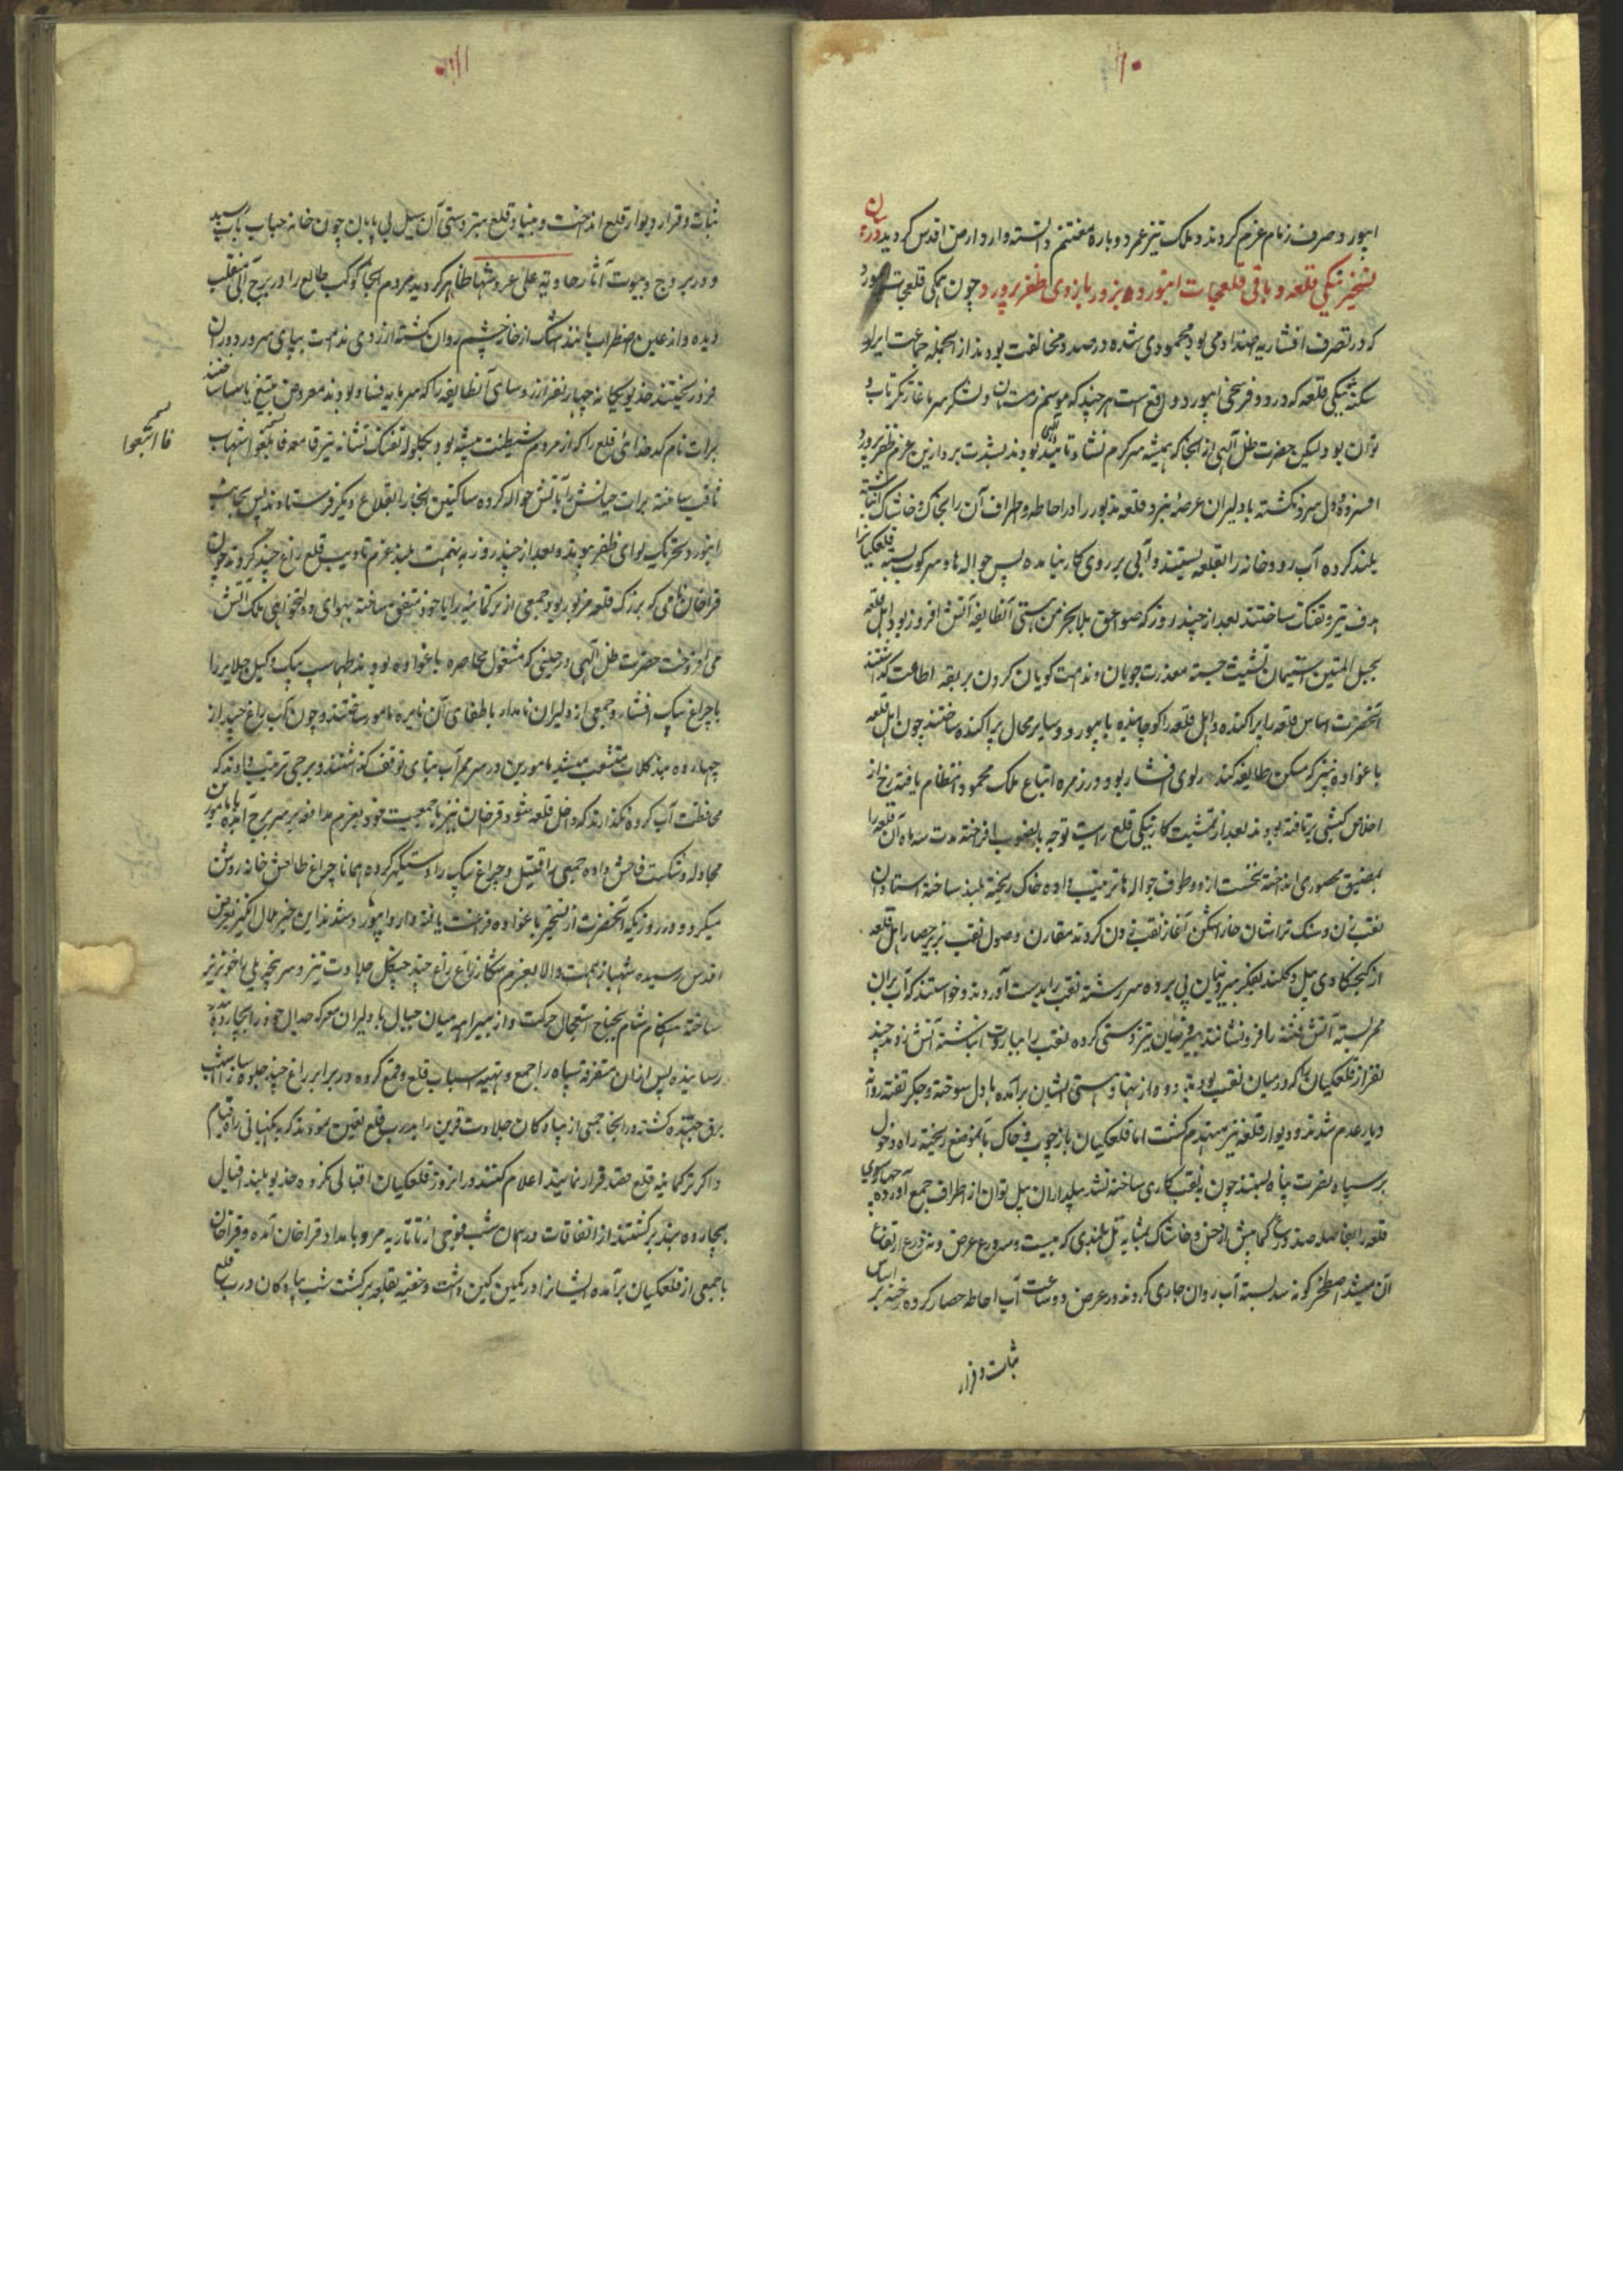 ۱۰
ابیورد صرف زمام عزم کردند و ملک نیز عمر دوباره مغتنم دانسته وارد ارض اقدس گردید در بیان
تسخیر ینکی قلعه و باقی قلعجات ابیورد بزور بازوی ظفر پرورد چون ینکی قلعجات ابیورد
که در تصرف افشاریه صدا دمی بود محمودی شده در صدد مخالفت بودند از انجمله جماعت
سکنه ینکی قلعه که در دو فرسخی ابیورد واقع است هر چند که موسم زمستان و لشکر سرما غارتگر تاب و
توان بود لیکن حضرت ظل الهی از انجا که همیشه سرگرم نشاء تائید الهی بودند بشدت برد ازین عزم ظفر پرورد
افسرده و دل سرد نگشته با دلیران عرصه نبرد قلعه مذبور را در احاطه و اطراف آن را بخاک و خاشاک انباشته
بلند کرده آب رودخانه را بقلعه بستند و آبی بر روی کار نیامده پس حواله ها و سرکوب بسته قلعکیانرا
هدف تیر و تفنک ساختند بعد از چند روز که صواعق بلا بخرمن هستی آنطایفه آتش افروز بود اهل قلعه
بحبل المتین استیمان تشبث جسته معذرت جویان و ندامت کویان کردن بربقه اطاعت گذاشتند
آنحضرت اساس قلعه را پراکنده و اهل قلعه را کوچانیده بابیورد و سایر محال پراکنده ساختند چون اهل قلعه
باغواده نیز که مسکن طایفه کندرلوی افشار بود و در زمره اتباع ملک محمود انتظام یافته رخ از
اخلاص کیشی برتافته بودند بعد از تمشیت کار ینکی قلع رایت توجه بانصوب افراخته مدت سه ماه آن قلعه را
بمضیق محصوری انداخته نخست از دو طرف حواله ها ترتیب داده خاک ریخته بلند ساخته استادان
نقب زن و سنک تراشان خارا شکن آغاز نقب زدن کردند مقارن وصول نقب بزیر حصار اهل قلعه
از کنجکاوی بیل و کلند بفکر بیرونیان پی برده سر رشته نقب را بدست آوردند و خواستند که آب بران
ممر بسته آتش فتنه را فرو نشانند بیرونیان تیزدستی کرده نقب را بباروت انباشته آتش زدند چند
نفر از قلعکیان را که در میان نقب بودند دود از نهاد هستی ایشان برآمده با دل سوخته و جگر تفته روانه
دیار عدم شدند و دیوار قلعه نیز منهدم گشت اما قلعکیان باز چوب و خاک بآنموضع ریخته راه دخول
بر سپاه نصرت پناه بستند چون به نقب کاری ساخته نشد بیلداران بیل توان از اطراف جمع آورده چهار سوی
قلعه را بفاصله صد ذرع کمابیش از خس و خاشاک بمثابه تل بلندی که بیست و سه ذرع عرض و نه ذرع ارتفاع
آن میشد اصطخر گونه سد بسته آب روان جاری کردند در عرض دو ساعت آب احاطه حصار کرده رخنه بر اساس
ثبات و قرار
۱۱
ثبات و قرار دیوار قلع انداخت و بنیاد قلع بتردستی آن سیل بی پایان چون خانه حباب بآب رسید
و در بروج و بیوت آثار خاویة علی عروشها ظاهر گردید مردم انجا کوکب طالع را در برج آبی منقلب
دیده و از عین اضطراب مانند اشک از خانه چشم روان گشته از روی ندامت بپای سرور دوران
فرو ریختند خدیو یگانه چهار نفر از روسای آنطایفه را که سرمایه فساد بودند معروض تیغ یاسا ساختند
برات نام کدخدای قلع را که از مردم شیطنت پیشه بود بکلوله تفنک نشانه تیر قاصمه فاتبعه شهاب
ثاقب ساخته برات جیاتش را بآتش حواله کرده ساکنین انجا را بقلاع دیگر فرستادند پس بجانب
ابیورد تحریک لوای ظفر پیوند و بعد از چند روز پنهمت بلند عزم تادیب قلع زاغ چند کردند چون
قراخان نامی که بزرک قلعه مزبور بود و جمعی از ترکمانیه را با خود متفق ساخته بهوای دولتخواهی ملک آتش
می افروخت حضرت ظل الهی در حینی که مشغول محاصره باغواده بودند طهماسب بیک وکیل جلایر را
با چراغ بیک افشار و جمعی از دلیران نامدار باطفای آن نایره مامور ساختند و چون آب زاغ چند از
چهارده بند کلات منشعب میشد مامورین در سر ممر آب بنای توقف گذاشتند و برجی ترتیب دادند که
محافظت آب کرده نگذارند که داخل قلعه شود قراخان نیز با جمعیت خود بعزم مدافعه بر سر برج آمده با مامورین
مجادله و شکست فاحش داده جمعی را قتیل و چراغ بیک را دستگیر کرده همانا چراغ طالعش خانه روشن
میکرد و در روزیکه آنحضرت از تسخیر باغواده فراغت یافته وارد ابیورد شدند این خبر ملال انگیز بعرض
اقدس رسیده شهباز همت والا بعزم شکار زاغ زاغ چند چنگل جلادت تیز و سر پنجه یلی را خونریز
ساخته هنگام شام بجناح استعجال حرکت و از بیراهه میان جبال با دلیران معرکه جدال خود را بچارده
رسانیده پس ازان متفرقه سپاه را جمع و تهیه اسباب قلع و قمع کرده در برابر زاغ چند جلوه ساز اشهب
برق جهنده گشته در انجا جمعی از پیادکان جلادت قرین را بدرب قلع تعیین نمودند که بدیکنبانی راه قیام
و اکر ترکمانیه قلع قصد فرار نمایند اعلام کنند در انروز قلعکیان اقبالی نکرده خدیو بلند اقبال
بچارده بند برگشتند از اتفاقات در همان شب فوجی از تاتاریه مرو بامداد قراخان آمده و قراخان
با جمعی از قلعکیان برآمده ایشانرا در کمین کین داشت و خفیه بقلعه برگشت شب پیادکان درب قلع
فاتبعوا